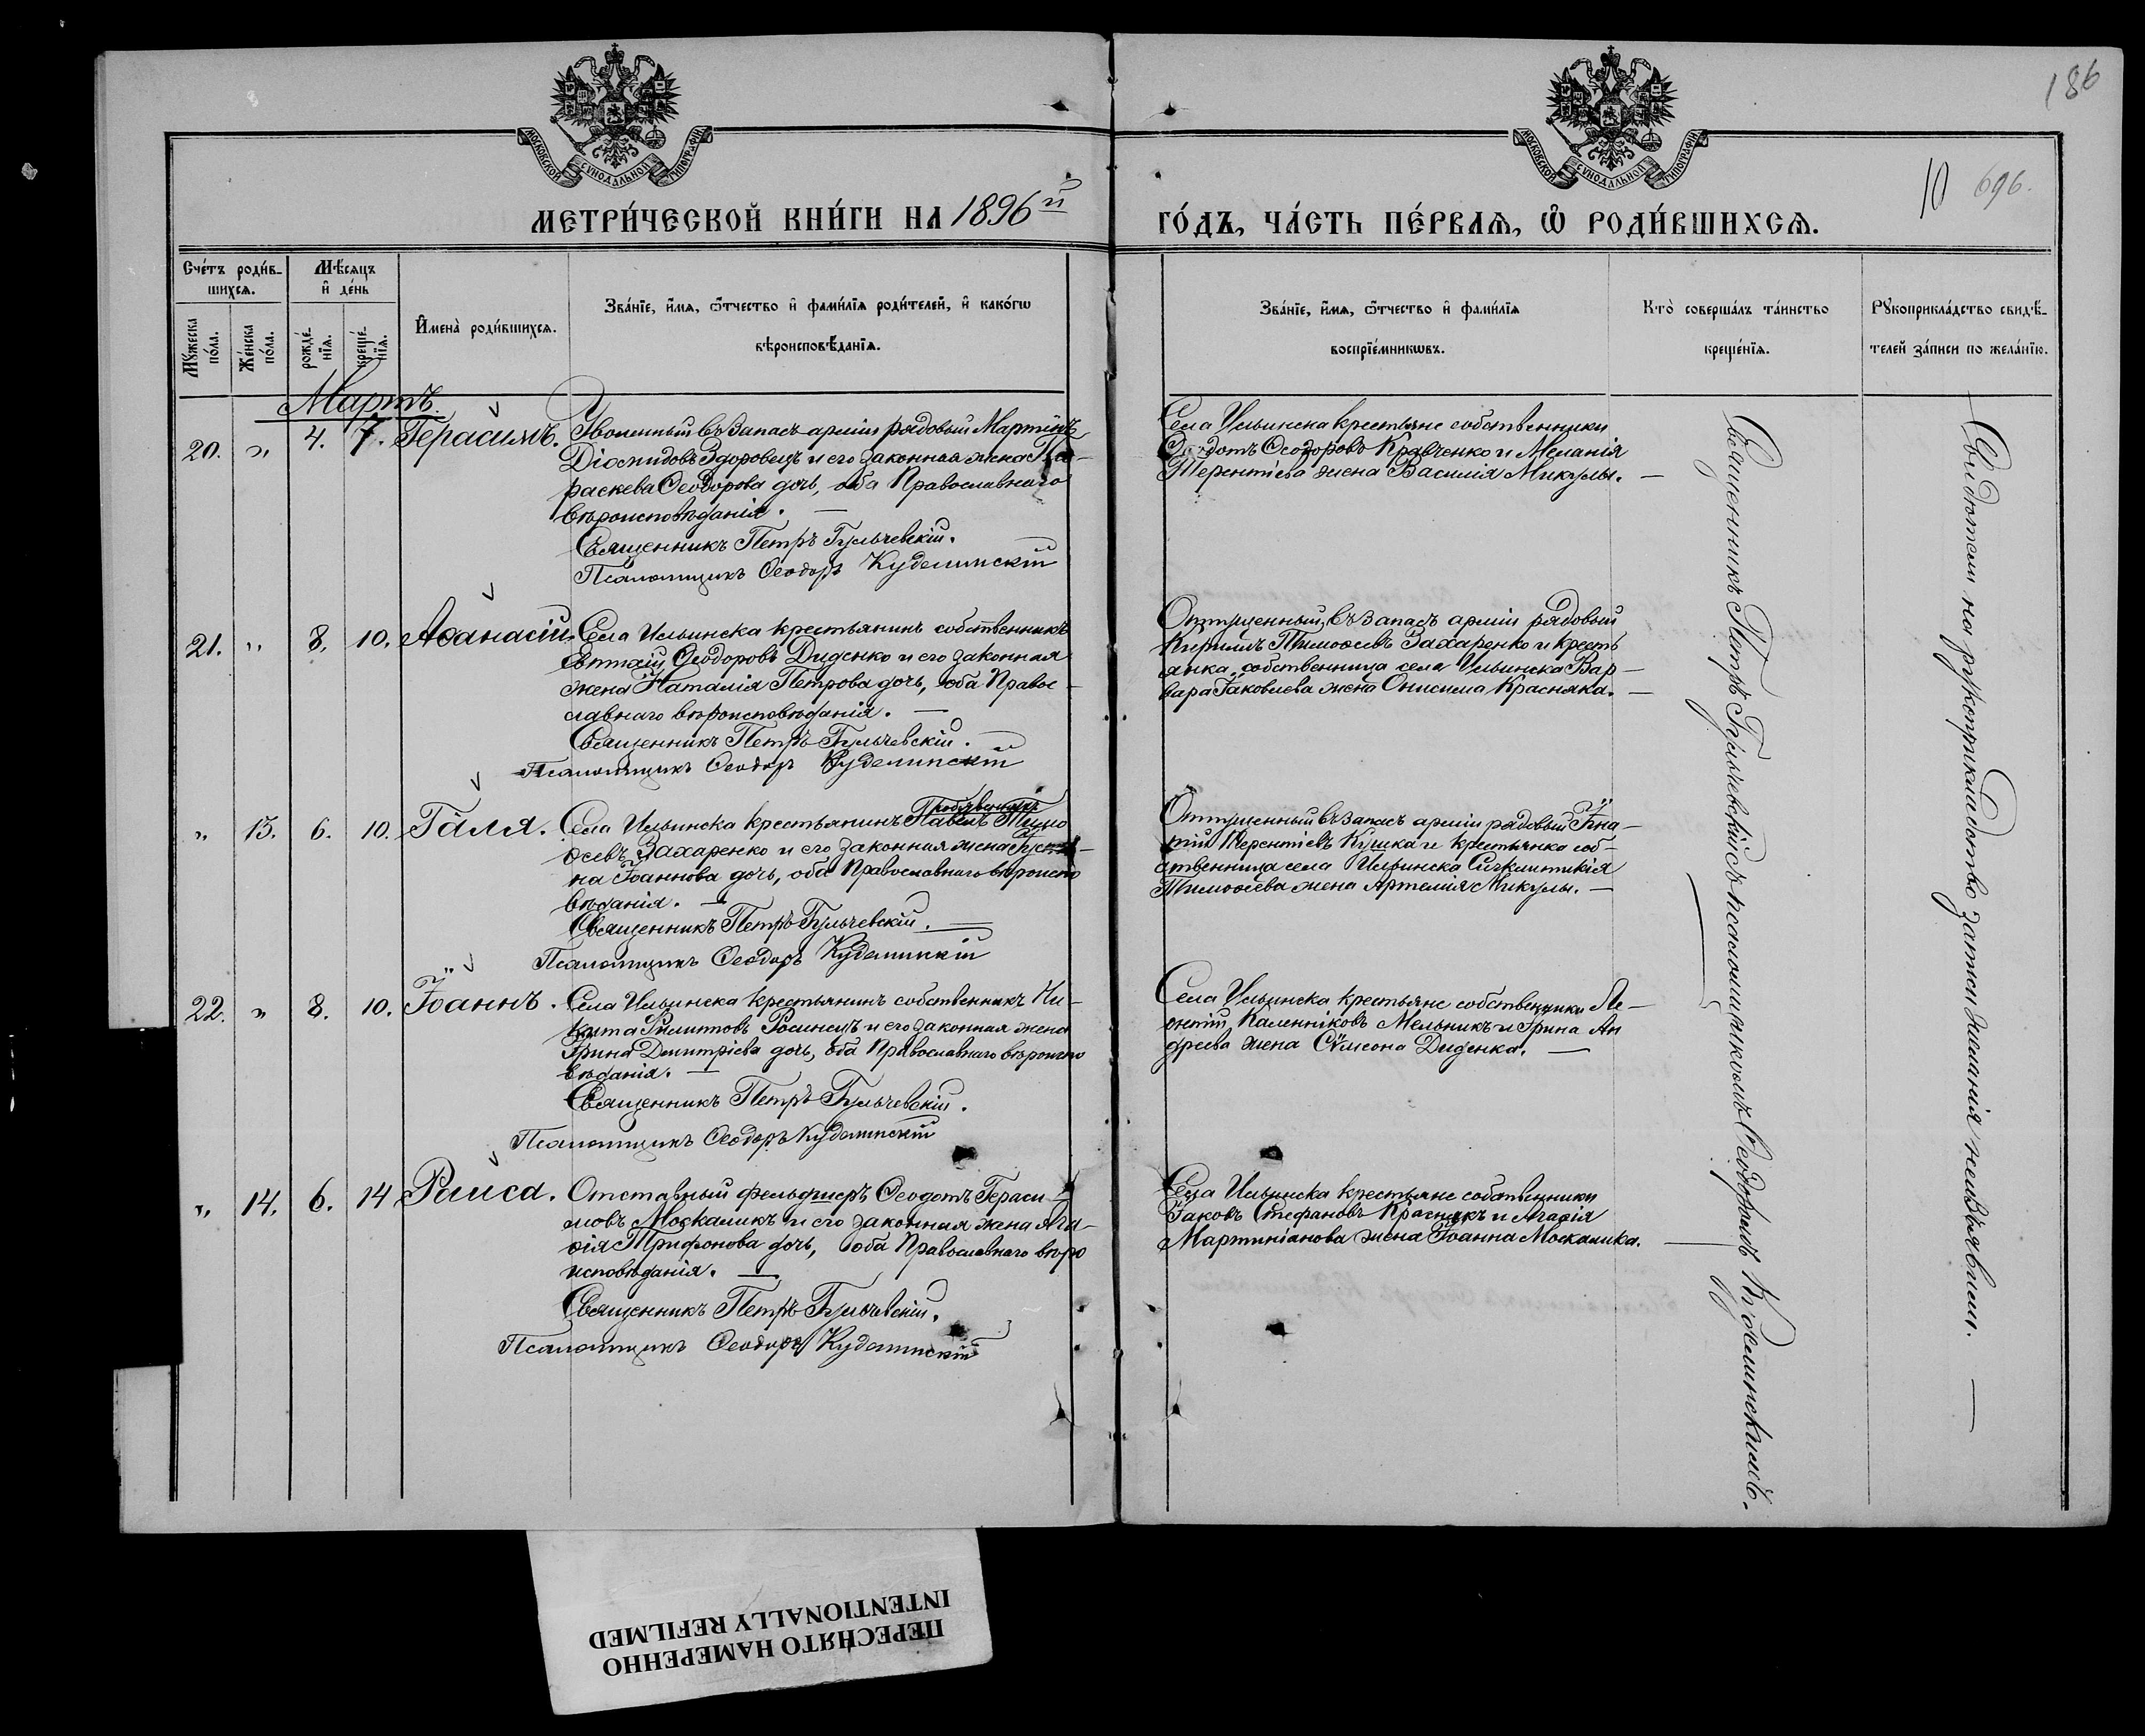 186
10 696.
МОСКОВСКОЙ СѴНОДАЛЬНОЙ ТИПОГРАФІИ
МОСКОВСКОЙ СѴНОДАЛЬНОЙ ТИПОГРАФІИ
МЕТРИ́ЧЕСКОЙ КНИ́ГИ НА 1896й ГО́ДЪ, ЧА́СТЬ ПЕ́РВАѦ, Ѡ҆ РОДИ́ВШИХСѦ.
Сче́тъ роди́в-
шихсѧ.
Мѣ́сѧцъ
и҆ де́нь
Мꙋ́жеска
по́ла.
Же́нска
по́ла.
рожде́-
нїѧ.
креще́-
нїѧ.
И҆мена̀ роди́вшихсѧ.
Зва́нїе, и҆́мѧ, ѻ҆́тчество и҆ фами́лїѧ роди́телей, и҆ како́гѡ
вѣроисповѣ́данїѧ.
Зва́нїе, и҆́мѧ, ѻ҆́тчество и҆ фами́лїѧ
воспрїе́мникѡвъ.
Кто̀ соверша́лъ та́инство
креще́нїѧ.
Рꙋкоприкла́дство свидѣ́-
телей за́писи по жела́нїю.
Мартъ.
20. " 4. 7. Герасимъ. Уволенный въ запасъ арміи рядовый Мартинъ
Діомидовъ Здоровецъ и его законная жена Па-
раскева Ѳеодорова дочь, оба Православнаго
вѣроисповѣданія. —
Священникъ Петръ Гульчевскій.
Псаломщикъ Ѳеодоръ Куделинскій
Села Ильинска крестьяне собственники
Ѳеодотъ Ѳеодоровъ Кравченко и Меланія
Терентіева жена Василія Микулы. —
21. " 8. 10. Аѳанасій. Села Ильинска крестьянинъ собственникъ
Ѳеодоровъ Диденко и его законная
жена Наталія Петрова дочь, оба Правос-
лавнаго вѣроисповѣданія. —
Священникъ Петръ Гульчевскій. —
Псаломщикъ Ѳеодоръ Куделинскій
Отпущенный въ запасъ арміи рядовый
Кириллъ Тимоѳеевъ Захаренко и кресть
янка собственница села Ильинска Вар-
вара Іаковлева жена Онисима Красняка. —
" 13. 6. 10. Галя. Села Ильинска крестьянинъ собственникъ Павелъ Тимо
ѳеевъ Захаренко и его законная жена
на Іоаннова дочь, оба Православнаго вѣроиспо
вѣданія. —
Священникъ Петръ Гульчевскій. —
Псаломщикъ Ѳеодоръ Куделинскій
Отпущенный въ запасъ арміи рядовый Игна-
тій Терентіевъ Кушка и крестьянка соб-
ственница села Ильинска
Тимоѳеева жена Артемія Микулы. —
22. " 8. 10. Іоаннъ. Села Ильинска крестьянинъ собственникъ Ни-
кита Филипповъ Росинецъ и его законная жена
Ирина Димитріева дочь, оба Православнаго вѣроиспо
вѣданія. —
Священникъ Петръ Гульчевскій.
Псаломщикъ Ѳеодоръ Куделинскій
Села Ильинска крестьяне собственники Ле-
онтій Каленниковъ Мельникъ и Ирина Ан
дреева жена Сѵмеона Диденка. —
" 14. 6. 14 Раиса. Отставный фельдшеръ Ѳеодотъ Гераси-
мовъ Москаликъ и его законная жена Ага-
ѳія Трифонова дочь, оба Православнаго вѣро
исповѣданія. —
Священникъ Петръ Гульчевскій.
Псаломщикъ Ѳеодоръ Куделинскій
Села Ильинска крестьяне собственники
Іаковъ Стефановъ Краснякъ и Агаѳія
Мартиніанова жена Іоанна Москалика. —
Священникъ Петръ Гульчевскій съ псаломщикомъ Ѳеодоромъ Куделинскимъ.
Свидѣтели на рукоприкладство записи желанія не изъявили. —
ПЕРЕСНЯТО НАМЕРЕННО
INTENTIONALLY REFILMED